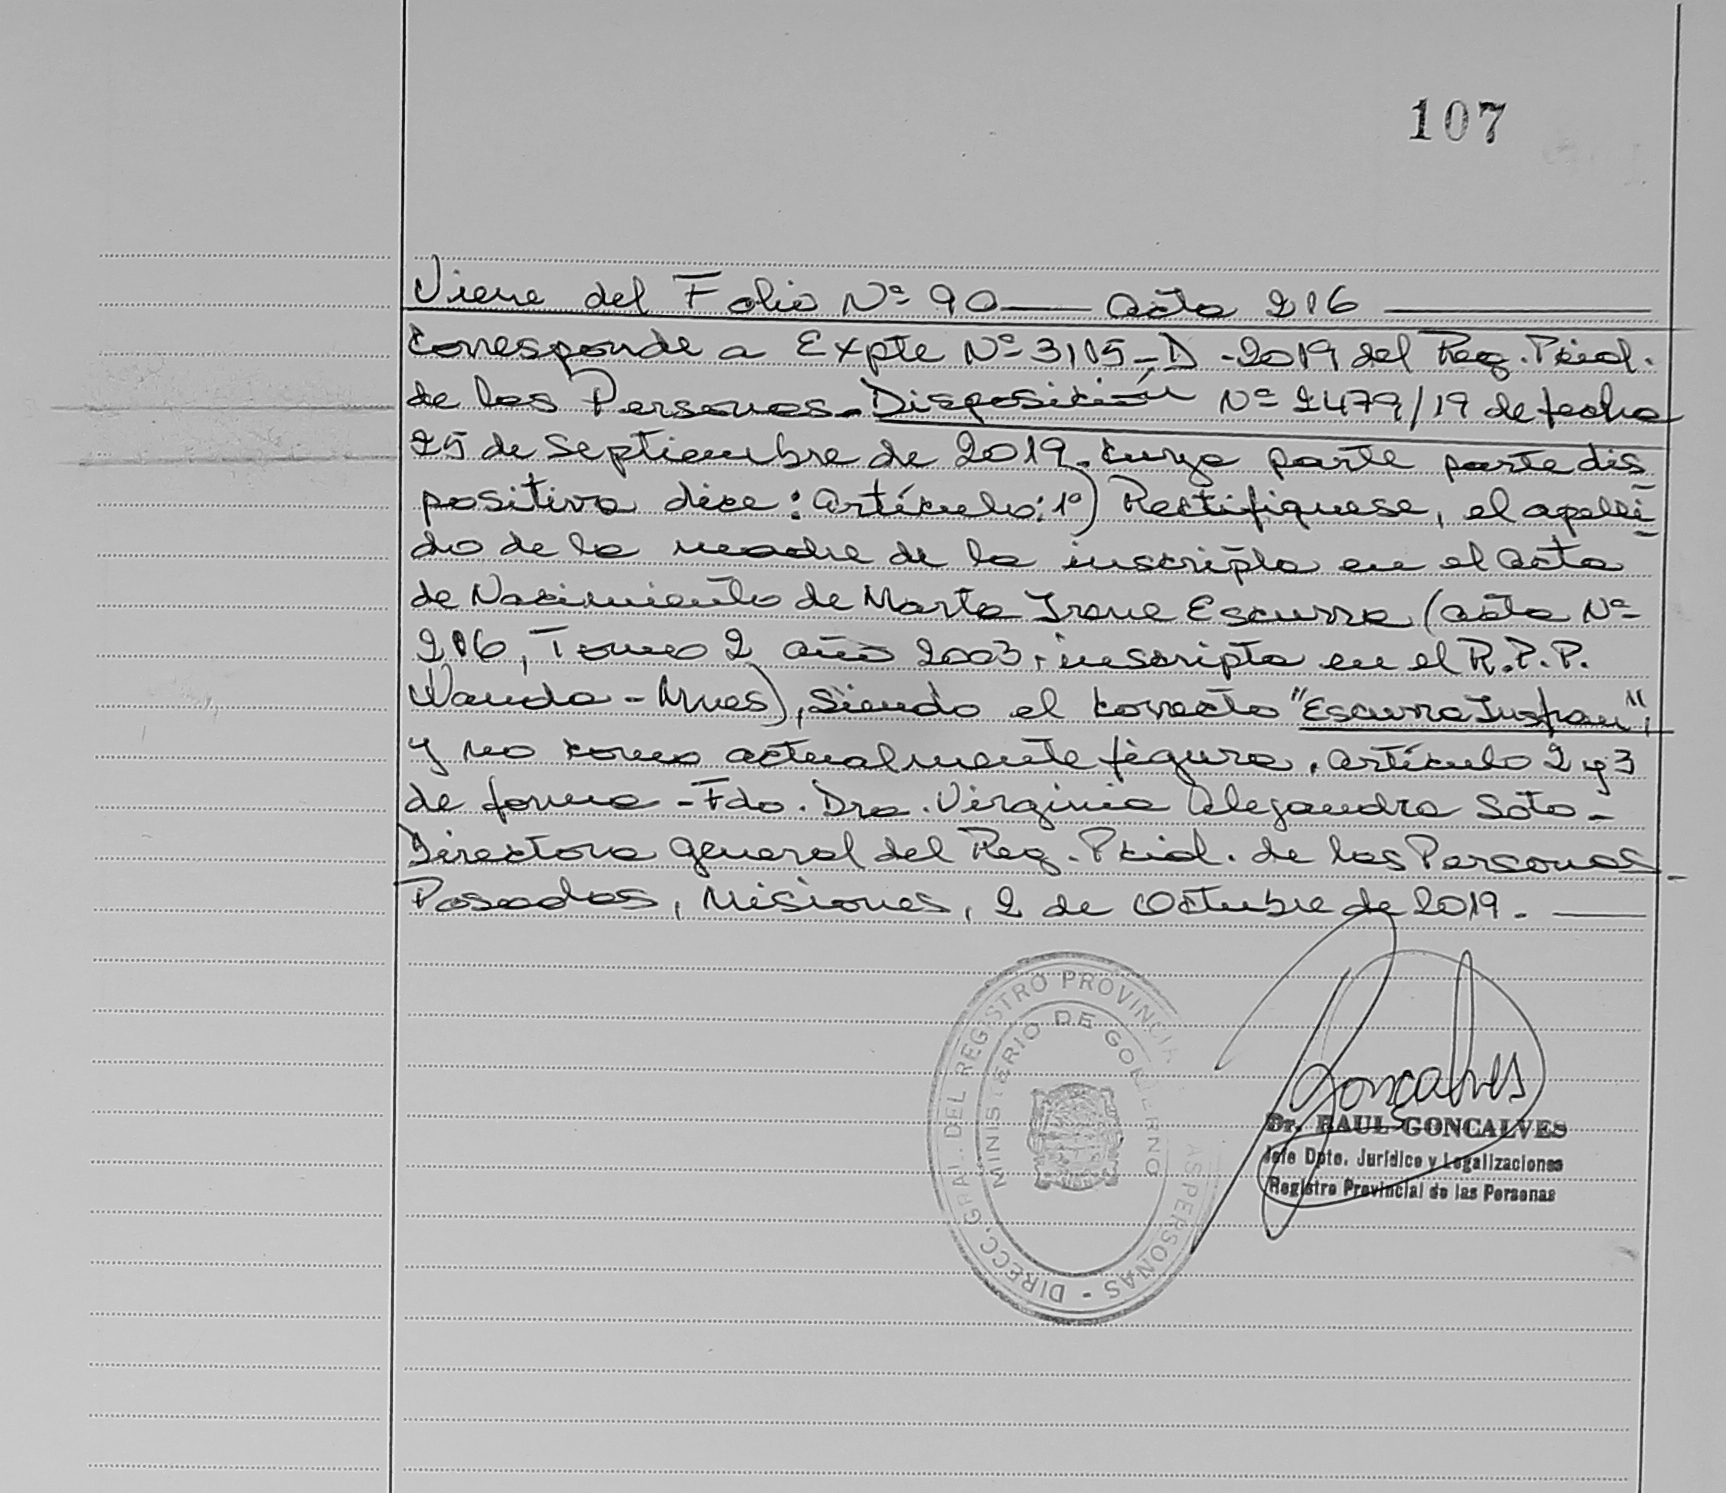 107
Viene del Folio Nº 90 — Acta 216 —
Corresponde a Expte Nº 3115-D-2019 del Reg. Pcial.
de las Personas. Disposición Nº 2479/19 de fecha
25 de Septiembre de 2019. Cuya parte parte dis
positiva dice: Artículo: 1º) Rectifíquese, el apelli-
do de la madre de la inscripta en el Acta
de Nacimiento de Marta Irene Escurra (Acta Nº
216, Tomo 2 año 2003, inscripta en el R.P.P.
Wanda - Mnes), siendo el correcto "Escurra Insfran",
y no como actualmente figura. Artículo 2 y 3
de forma - Fdo. Dra. Virginia Alejandra Soto -
Directora General del Reg. Pcial. de las Personas -
Posadas, Misiones, 2 de Octubre de 2019. —
DIRECC. GRAL. DEL REGISTRO PROVINCIAL AS PERSONAS -
MINISTERIO DE GOBIERNO
Goncalves
Dr. RAUL GONCALVES
Jefe Dpto. Jurídico y Legalizaciones
Registro Provincial de las Personas